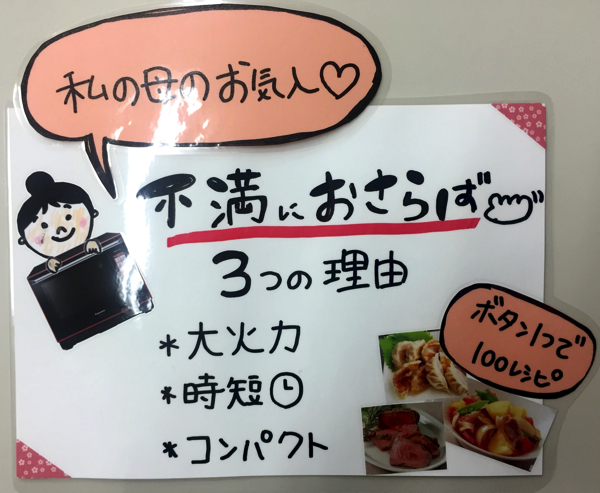 私の母のお気入♡
不満におさらば
3つの理由
*大火力
*時短
*コンパクト
ボタン1つで
100レシピ